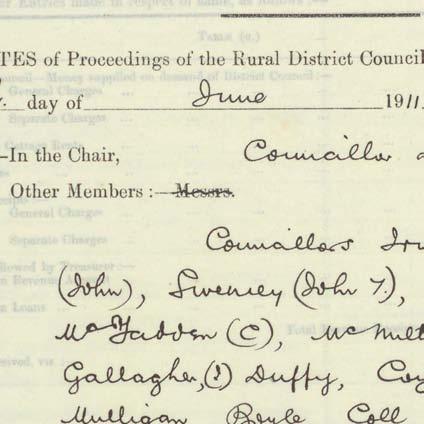 TES of Proceedings of the Rural District Council
day of June 1911
-In the Chair, Councillor
Other Members :— Messrs.
Councillors
(John), Sweeney (John T.),
McFadden (C),
Gallagher, Duffy,
Mulligan Boyle Coll